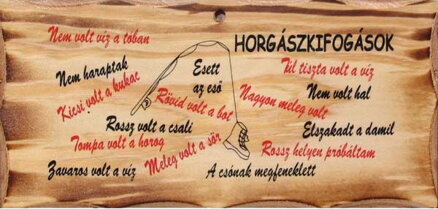 HORGÁSZKIFOGÁSOK
Nem volt víz a tóban
Nem haraptak
Kicsi volt a kukac
Esett
az eső
Rövid volt a bot
Túl tiszta volt a víz
Nem volt hal
Nagyon meleg volt
Rossz volt a csali
Elszakadt a damil
Tompa volt a horog
Meleg volt a sör
Rossz helyen próbáltam
Zavaros volt a víz
A csónak megfeneklett